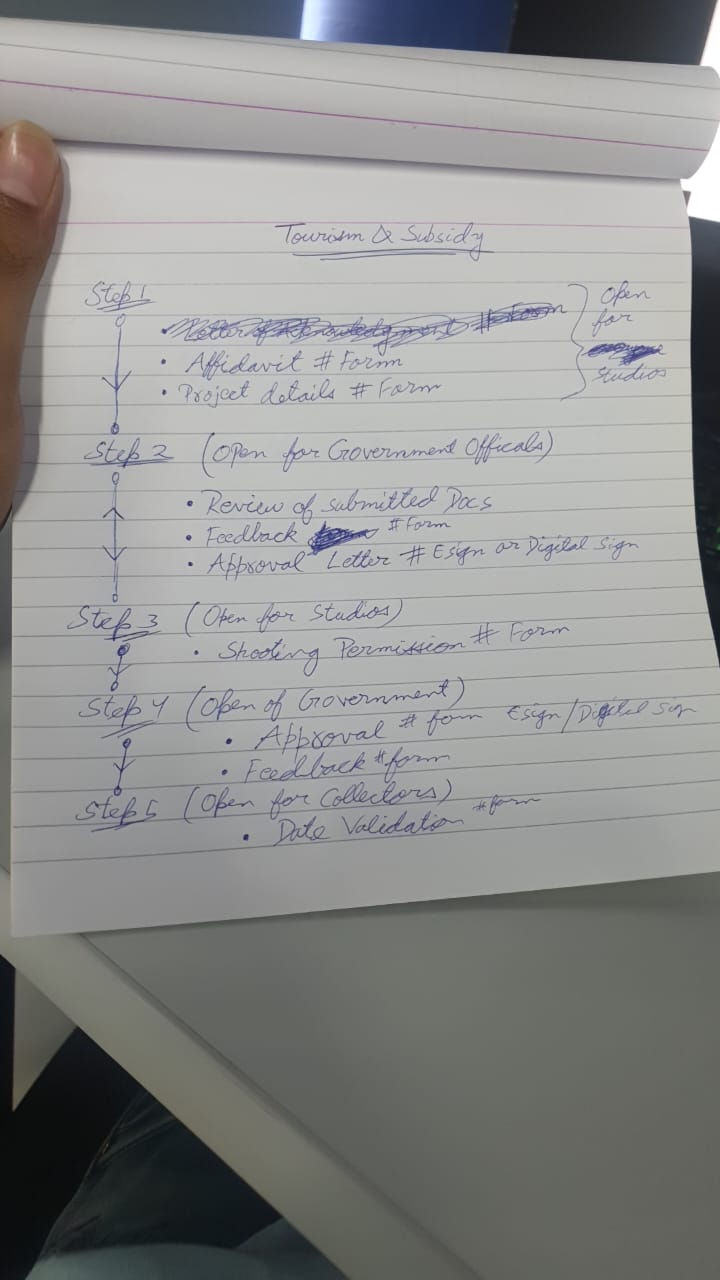 Tourism & Subsidy
Step 1
Letter of Acknowledgment # Form
• Affidavit # Form
• Project details # Form
Open
for
studios
Step 2 (Open for Government Officals)
• Review of submitted Docs
• Feedback # Form
• Approval Letter # Esign or Digital Sign
Step 3 (Open for Studios)
• Shooting Permission # Form
Step 4 (Open of Government)
• Approval # form Esign/Digital Sign
• Feedback # form
Step 5 (Open for Collectors)
• Date Validation # form